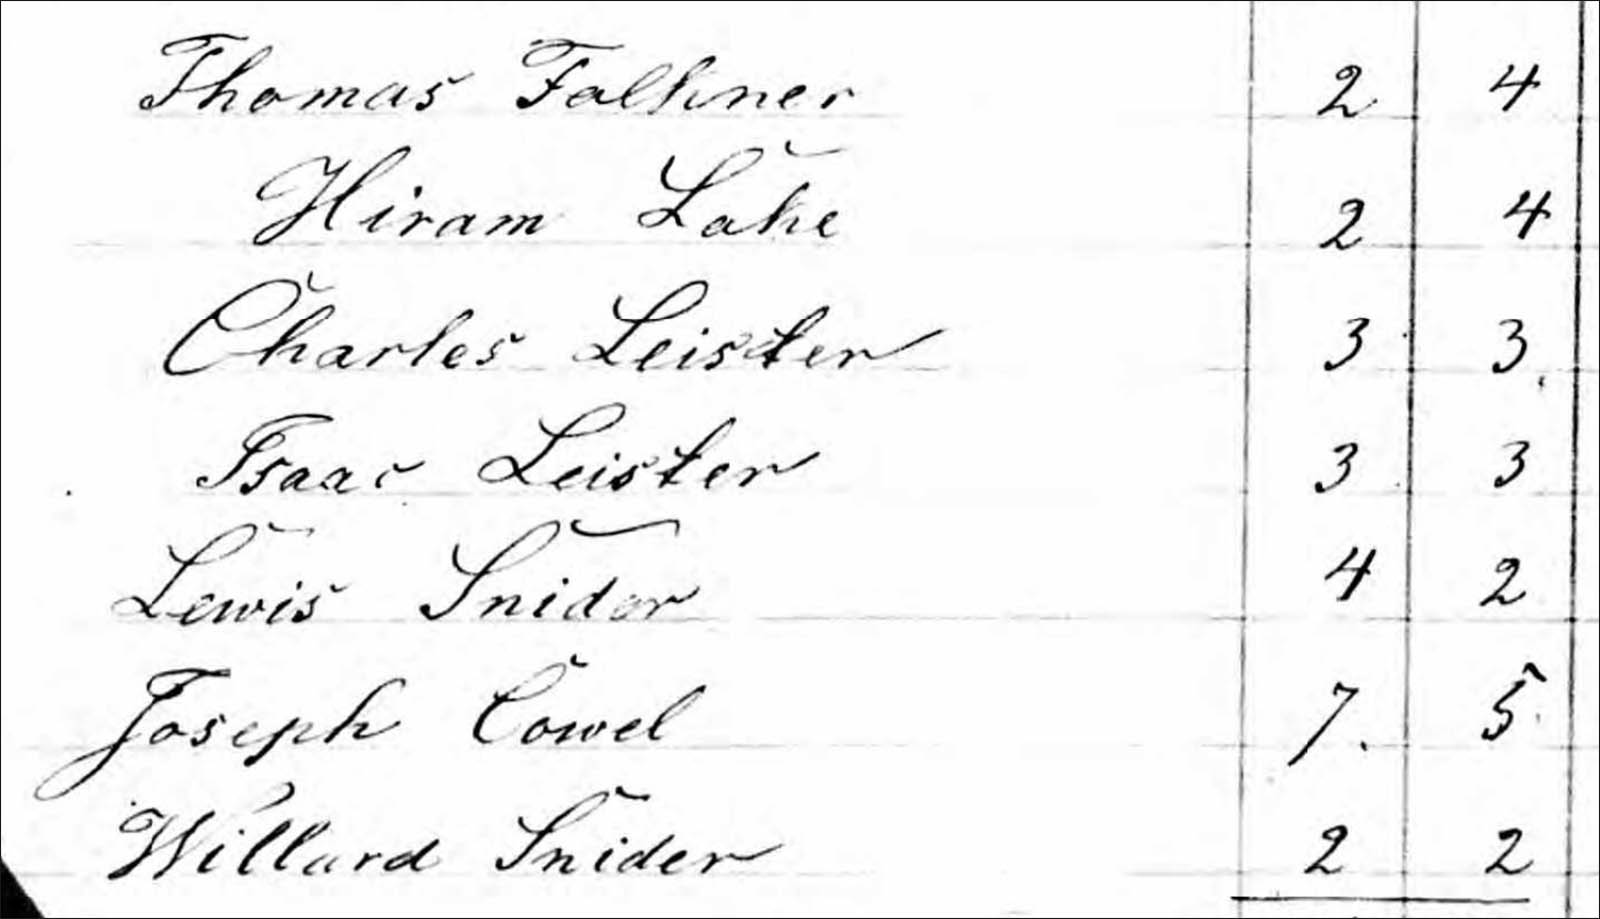 Thomas Falkner 2 4
Hiram Lake 2 4
Charles Leister 3 3
Isaac Leister 3 3
Lewis Snider 4 2
Joseph Cowel 7 5
Willard Snider 2 2